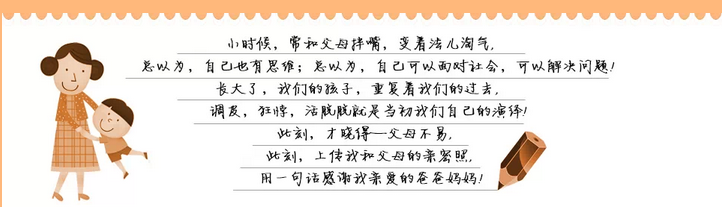 小时候，常和父母拌嘴，变着法儿淘气，
总以为，自己也有思维；总以为，自己可以面对社会，可以解决问题！
长大了，我们的孩子，重复着我们的过去，
调皮，狂悖，活脱脱就是当初我们自己的演绎！
此刻，才晓得—父母不易，
此刻，上传我和父母的亲密照，
用一句话感谢我亲爱的爸爸妈妈！